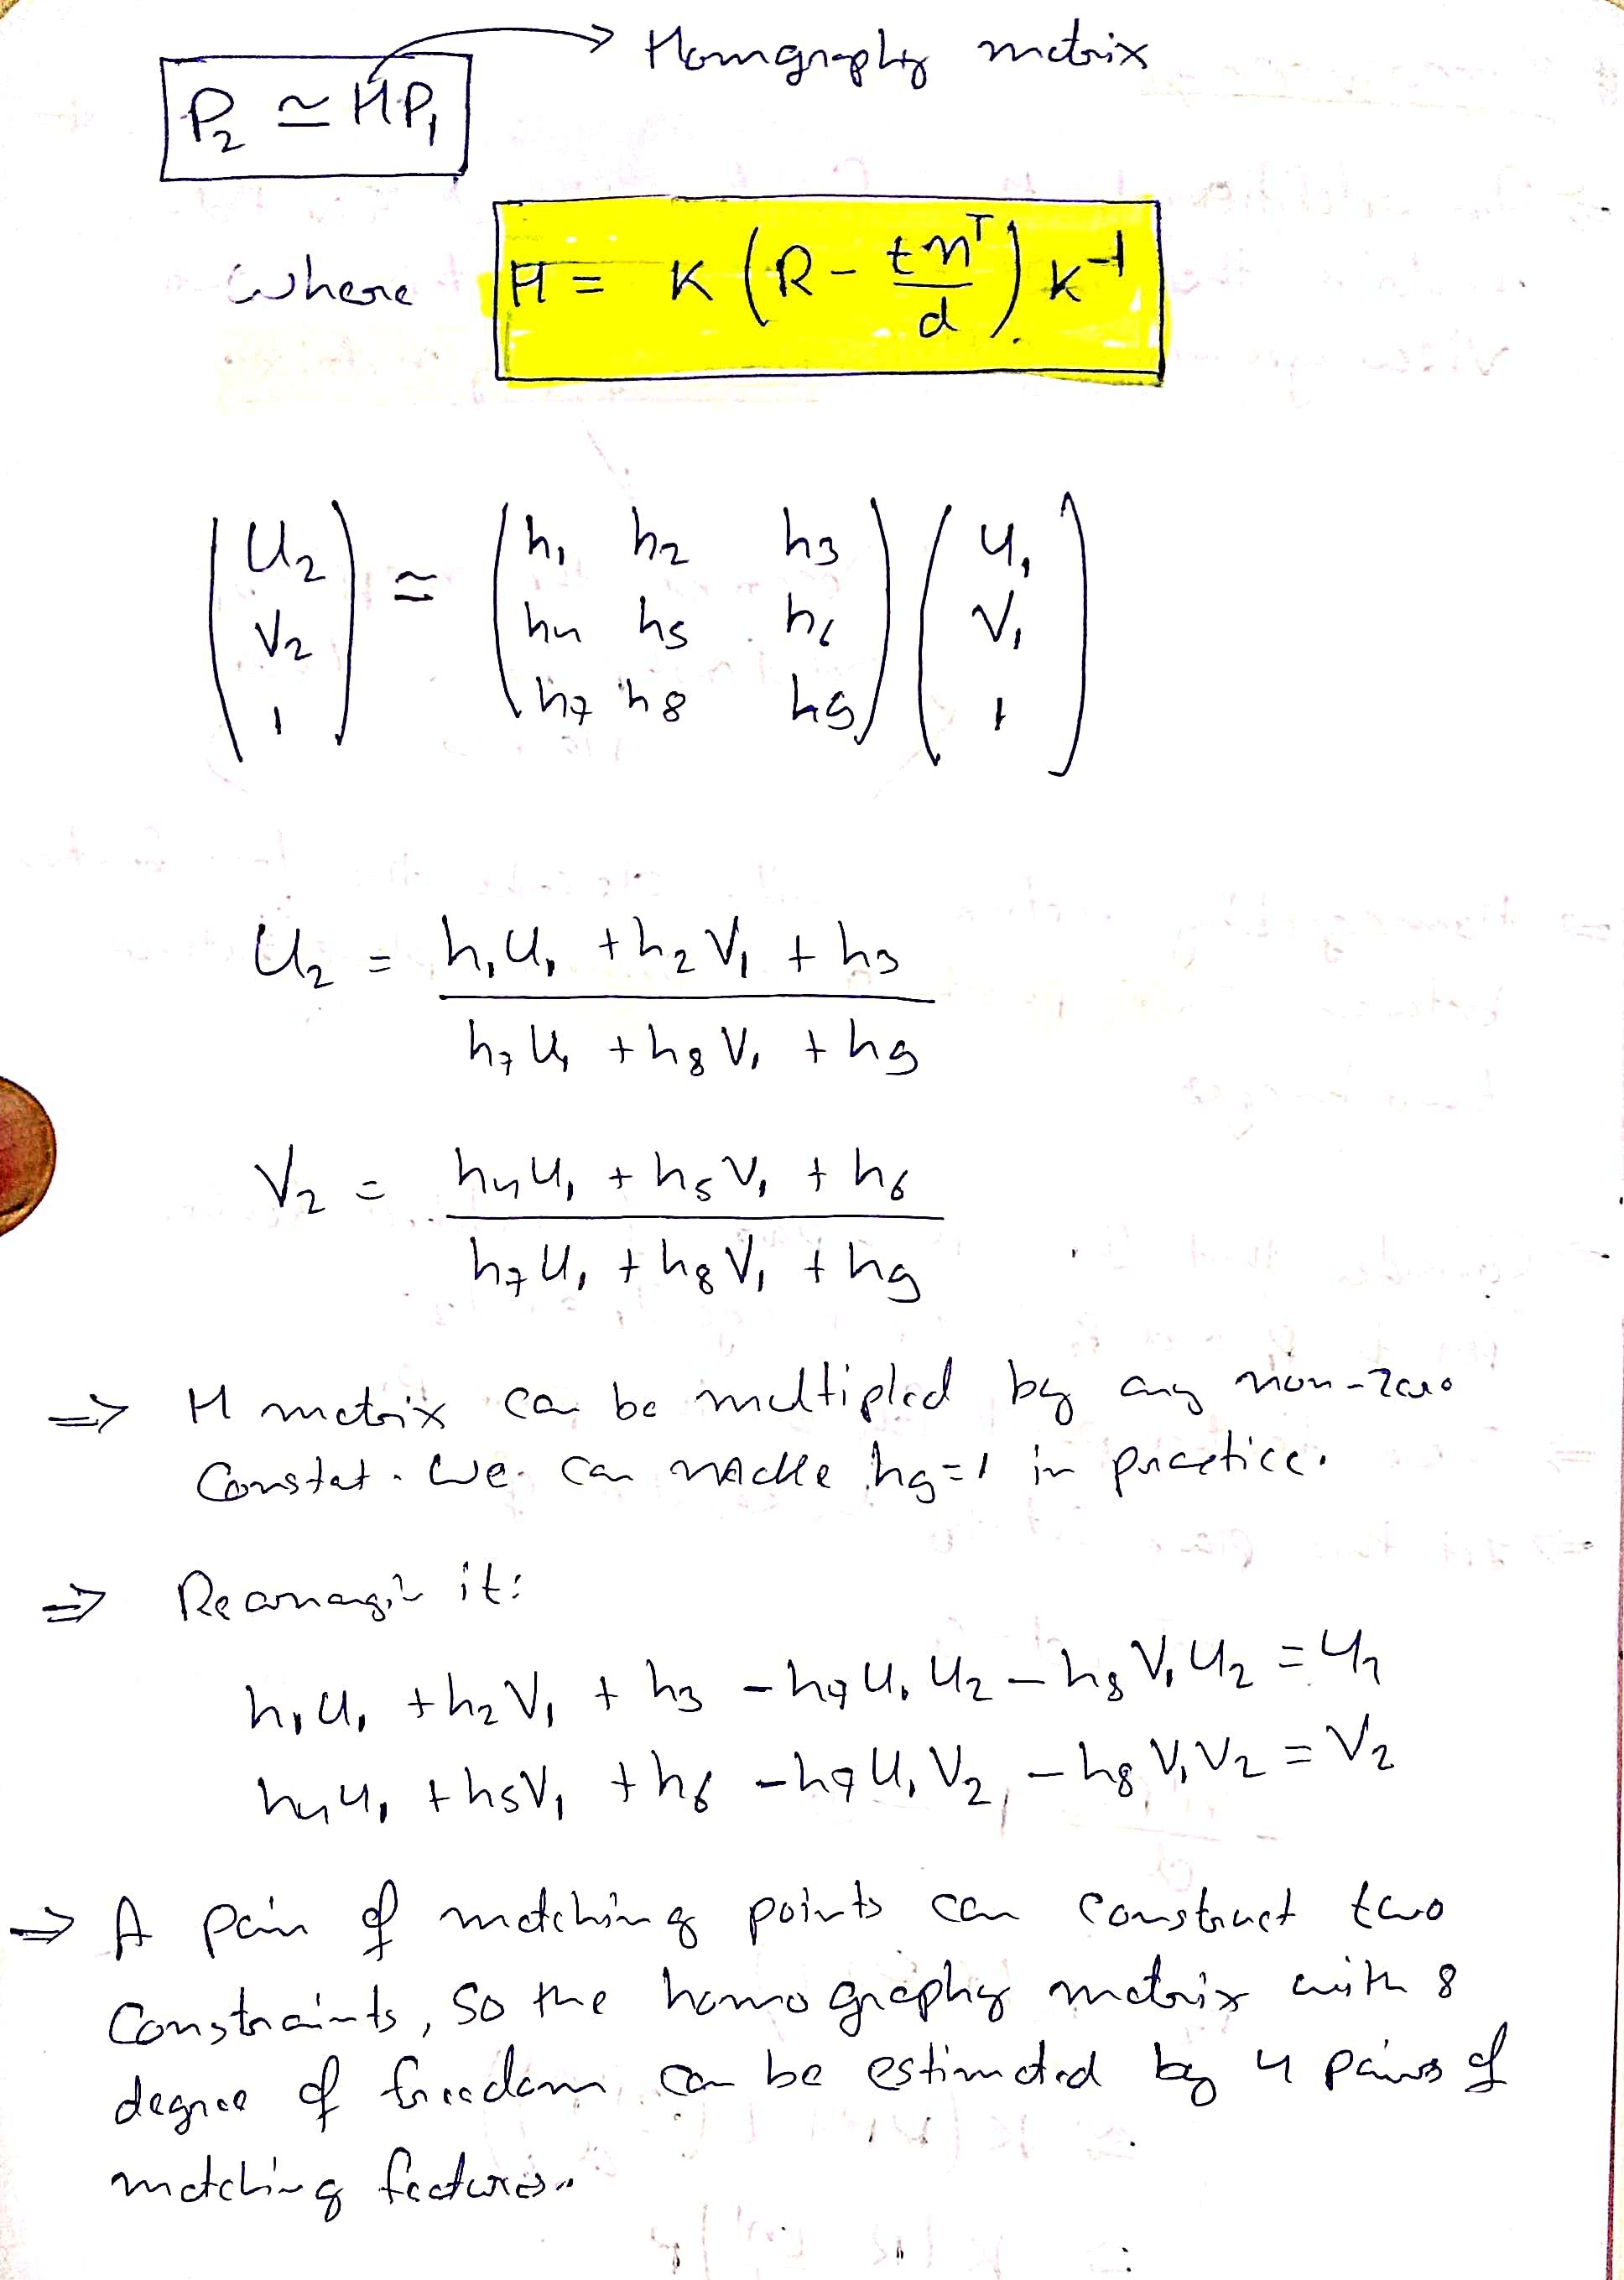 Homography matrix
P₂ ≃ HP₁
where H = K (R - tnᵀ/d) K⁻¹
(u₂ v₂ 1) ≃ (h₁ h₂ h₃ h₄ h₅ h₆ h₇ h₈ h₉) (u₁ v₁ 1)
u₂ = h₁u₁ + h₂v₁ + h₃
h₇u₁ + h₈v₁ + h₉
v₂ = h₄u₁ + h₅v₁ + h₆
h₇u₁ + h₈v₁ + h₉
⇒ H matrix can be multiplied by any non-zero
Constat. We can make h₉=1 in practice.
⇒ Rearrangin it:
h₁u₁ + h₂v₁ + h₃ - h₇u₁u₂ - h₈v₁u₂ = u₂
h₄u₁ + h₅v₁ + h₆ - h₇u₁v₂ - h₈v₁v₂ = v₂
⇒ A pair of matching points can construct two
Constraints, so the homography matrix with 8
degree of freedom can be estimated by 4 pairs of
matching features.